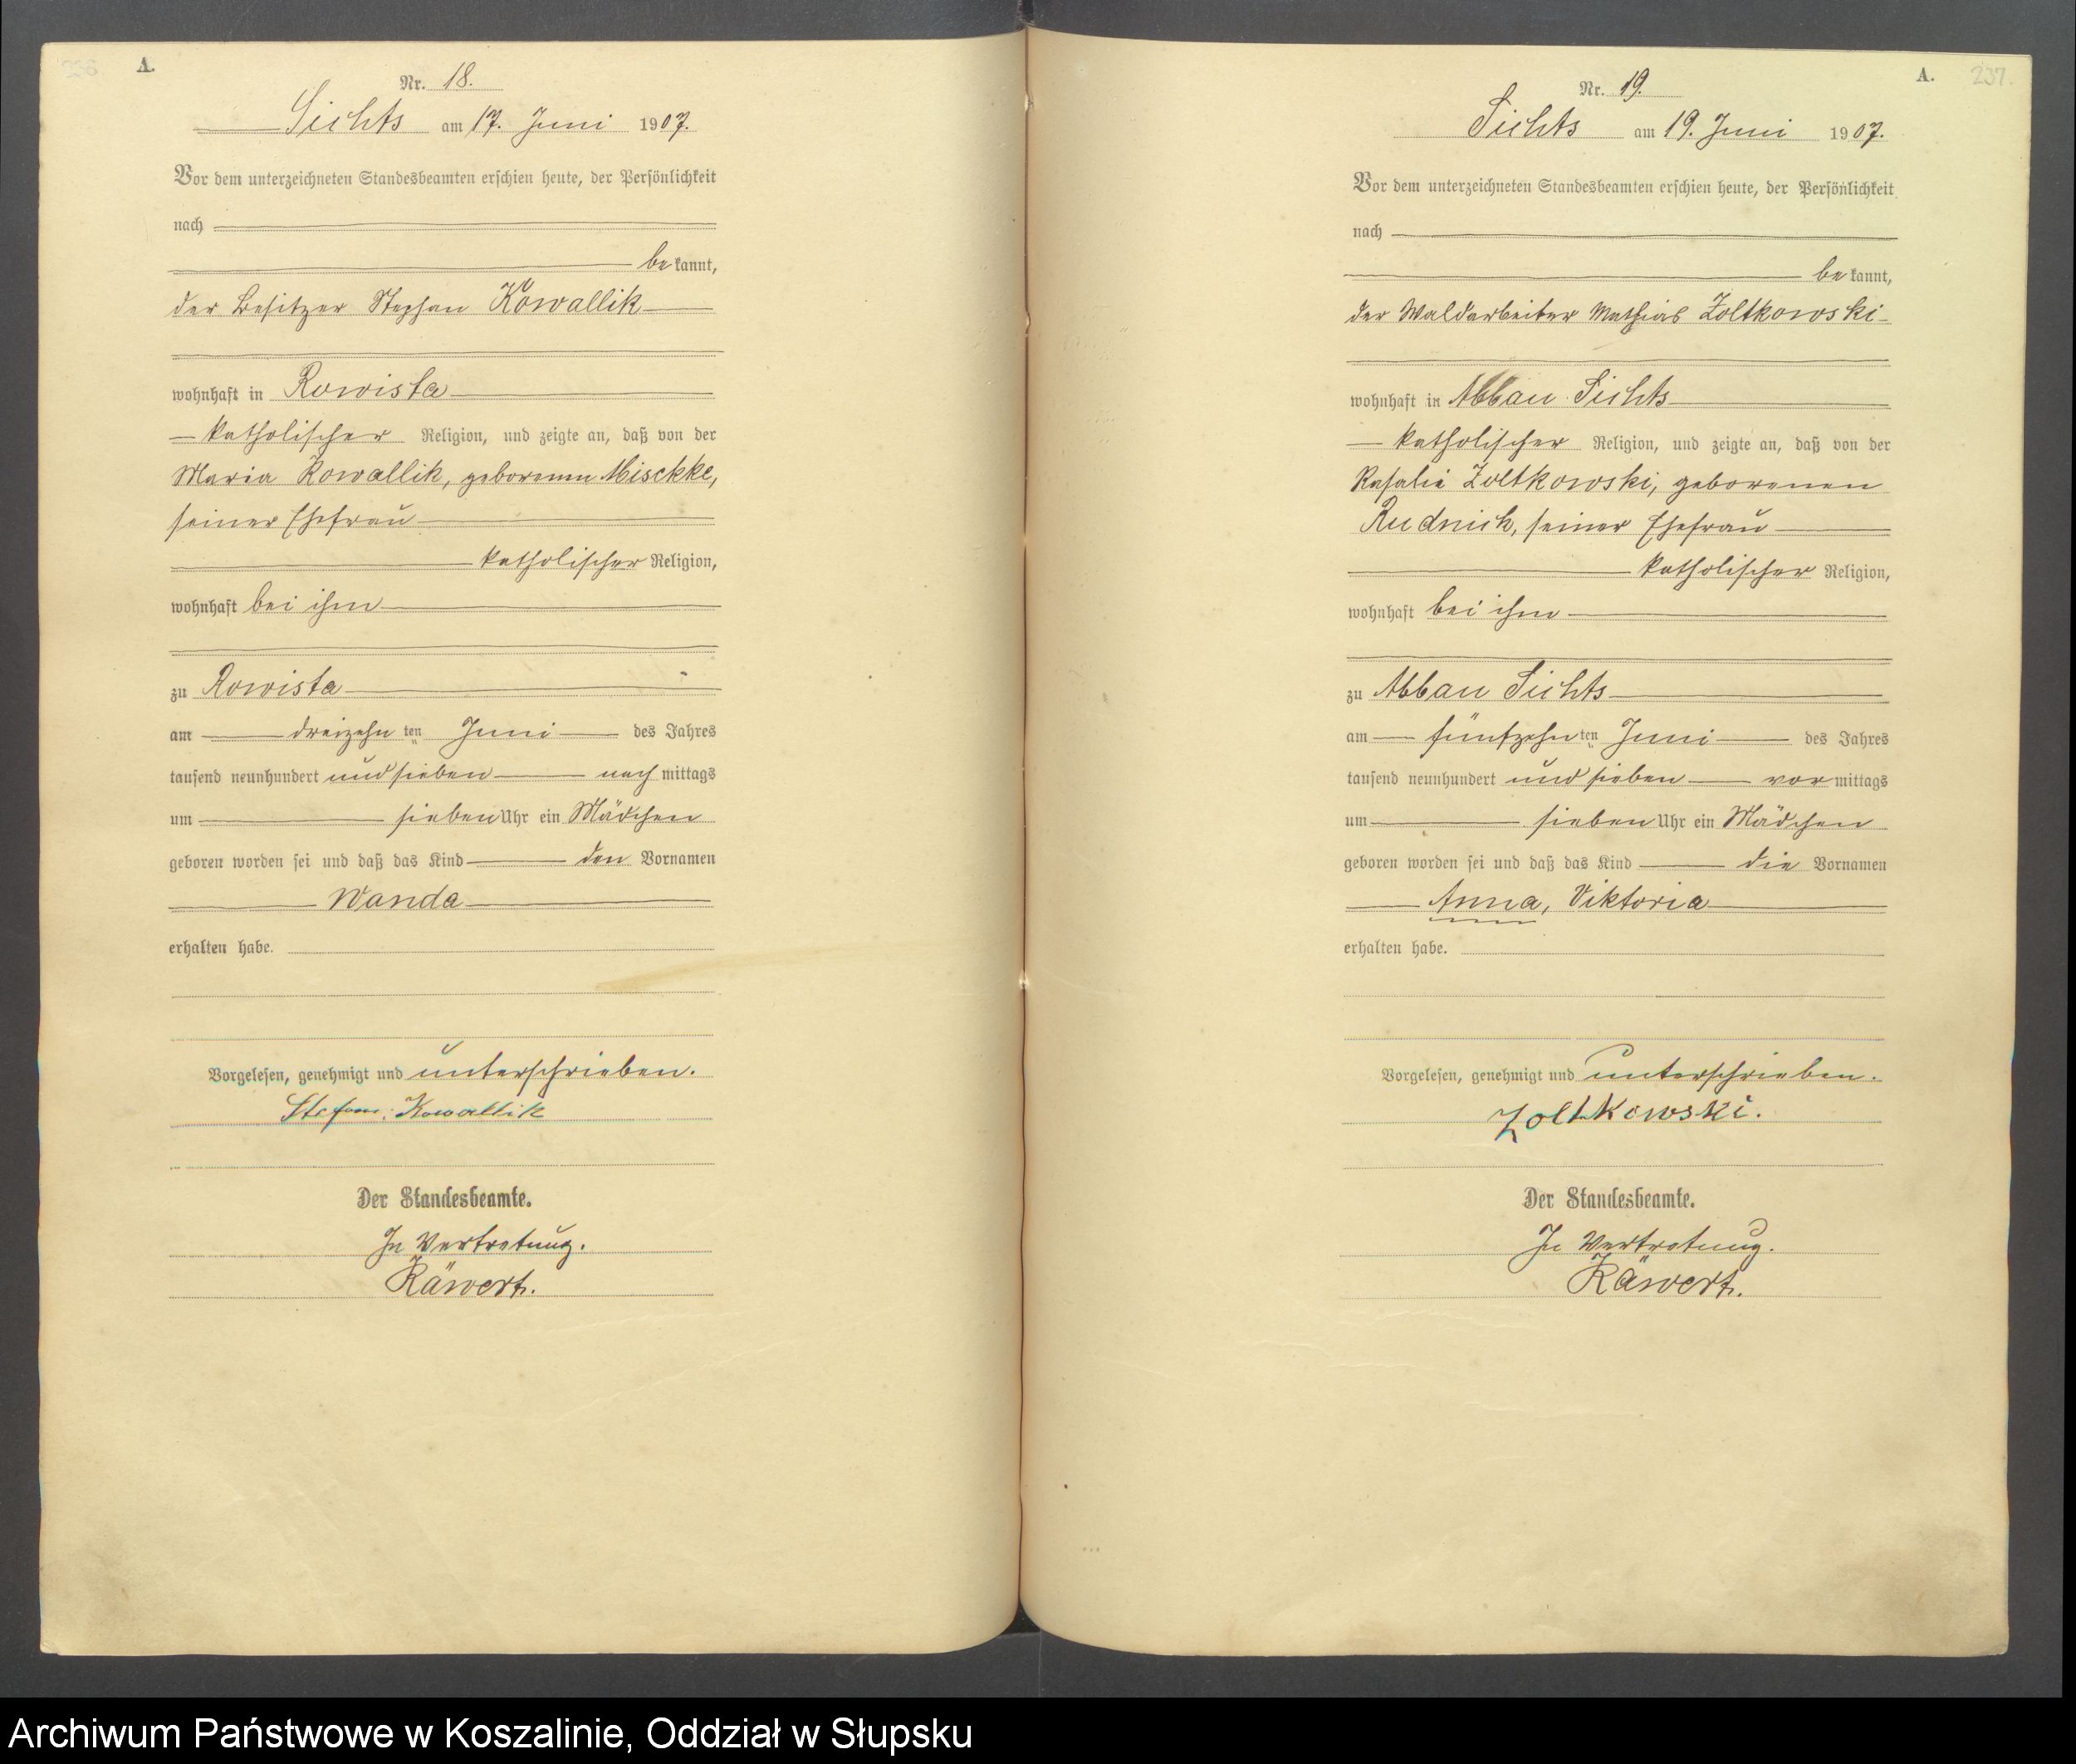 236
A.
Nr. 18.
Sichts am 17. Juni 1907.
Vor dem unterzeichneten Standesbeamten erschien heute, der Persönlichkeit
nach
bekannt,
der Besitzer Stephan Kowallik
wohnhaft in Rowista
katholischer Religion, und zeigte an, daß von der
Maria Kowallik, geborenen Mischke,
seiner Ehefrau
katholischer Religion,
wohnhaft bei ihm
zu Rowista
am dreizehnten Juni des Jahres
tausend neunhundert und sieben nachmittags
um sieben Uhr ein Mädchen
geboren worden sei und daß das Kind den Vornamen
Wanda
erhalten habe.
Vorgelesen, genehmigt und unterschrieben.
Stefan Kowallik
Der Standesbeamte.
In Vertretung.
Räwert.
A.
237.
Nr. 19.
Sichts am 19. Juni 1907.
Vor dem unterzeichneten Standesbeamten erschien heute, der Persönlichkeit
nach
bekannt,
der Waldarbeiter Mathias Zoltkowski
wohnhaft in Abbau Sichts
katholischer Religion, und zeigte an, daß von der
Rosalie Zoltkowski, geborenen
Rudnick, seiner Ehefrau
katholischer Religion,
wohnhaft bei ihm
zu Abbau Sichts
am fünfzehnten Juni des Jahres
tausend neunhundert und sieben vormittags
um sieben Uhr ein Mädchen
geboren worden sei und daß das Kind die Vornamen
Anna, Viktoria
erhalten habe.
Vorgelesen, genehmigt und unterschrieben.
Zoltkowski.
Der Standesbeamte.
In Vertretung.
Räwert.
Archiwum Państwowe w Koszalinie, Oddział w Słupsku